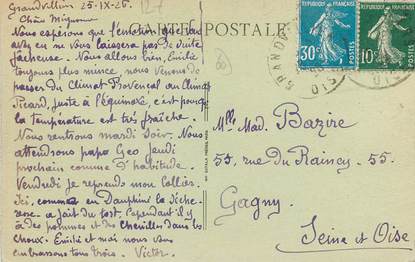 Grandvilliers 25-IX-26
Chère Mignonne
Nous espérons que l'émotion que tu as
eu ne vous laissera pas de suite
fâcheuse. Nous allons bien, Emilie
toujours plus mince, nous venons de
passer du Climat Provençal au Climat
Picard, juste à l'équinoxe, c'est pourquoi
la température est très fraîche.
Nous rentrons mardi soir. Nous
attendrons papa Geo Jeudi
prochain comme d'habitude.
Vendredi je reprends mon collier.
Ici, comme en Dauphiné la séche-
resse a fait du tort. Cependant il y
a des pommes et des Chenilles dans les
choux. Emilie et moi nous vous
embrassons tous trois. Victor.
CARTE POSTALE
REPUBLIQUE FRANÇAISE
30c
POSTES
REPUBLIQUE FRANÇAISE
10c
POSTES
Mlle Mad. Bazire
55, rue du Raincy - 55.
Gagny.
Seine et Oise